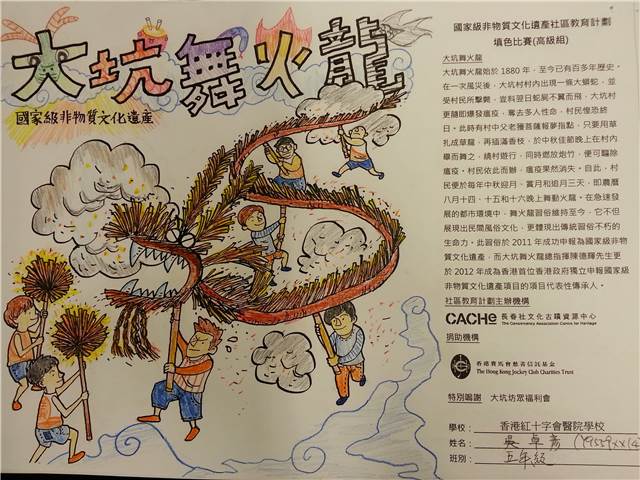 大坑舞火龍
國家級非物質文化遺產
國家級非物質文化遺產社區教育計劃
填色比賽(高級組)
大坑舞火龍
大坑舞火龍始於 1880 年，至今已有百多年歷史。
在一次風災後，大坑村村內出現一條大蟒蛇，並
受村民所擊斃，豈料翌日蛇屍不翼而飛，大坑村
更隨即爆發瘟疫，奪去多人性命，村民惶恐終
日。此時有村中父老獲菩薩報夢指點，只要用草
扎成草龍，再插滿香枝，於中秋佳節晚上在村內
舉而舞之，繞村遊行，同時燃放炮竹，便可驅除
瘟疫。村民依此而辦，瘟疫果然消失。自此，村
民便於每年中秋迎月、賞月和追月三天，即農曆
八月十四、十五和十六晚上舞動火龍。在急速發
展的都市環境中，舞火龍習俗維持至今，它不但
展現出民間風俗文化，更體現出傳統習俗不朽的
生命力。此習俗於 2011 年成功申報為國家級非物
質文化遺產，而大坑舞火龍總指揮陳德輝先生更
於 2012 年成為香港首位香港政府獨立申報國家級
非物質文化遺產項目的項目代表性傳承人。
社區教育計劃主辦機構
CACHe 長春社文化古蹟資源中心
The Conservancy Association Centre for Heritage
捐助機構
香港賽馬會慈善信託基金
The Hong Kong Jockey Club Charities Trust
特別鳴謝 大坑坊眾福利會
學校： 香港紅十字會醫院學校
姓名： 吳卓
班別： 五年級